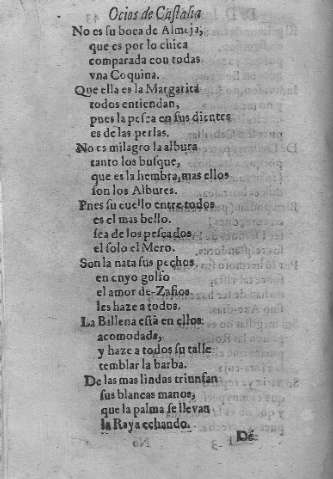 Ocios de Castalia
No es su boca de Almeja,
que es por lo chica
comparada cou todas
vna Coquina.
Que ella es la Margarita
todos entiendan,
pues la pesca en sus dientes
es de las perlas.
No es milagro la albura
tanto los busque,
que es la hembra, mas ellos
son los Albures.
Pnes su cuello entre todos
es el mas bello.
sea de los pescados
el solo el Mero.
Son la nata sus pechos
en cnyo golfo
el amor de-Zafios
les haze a todos.
La Ballena está en ellos:
acomodada,
y haze a todos su talle
temblar la barba.
De las mas lindas triunfan
sus blancas manos,
que la palma se llevan
la Raya echando.
De-